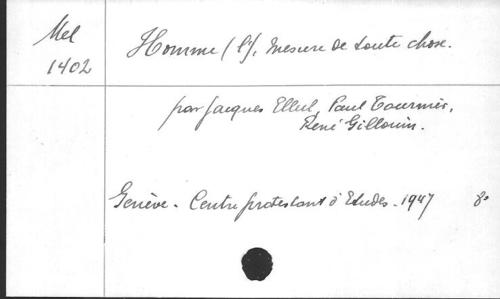 Mel
1402
Homme (l'), mesure de toute chose.
par Jacques Ellul, Paul Tournier,
René Gillouin.
Genève - Centre protestant d'Etudes - 1947 8°